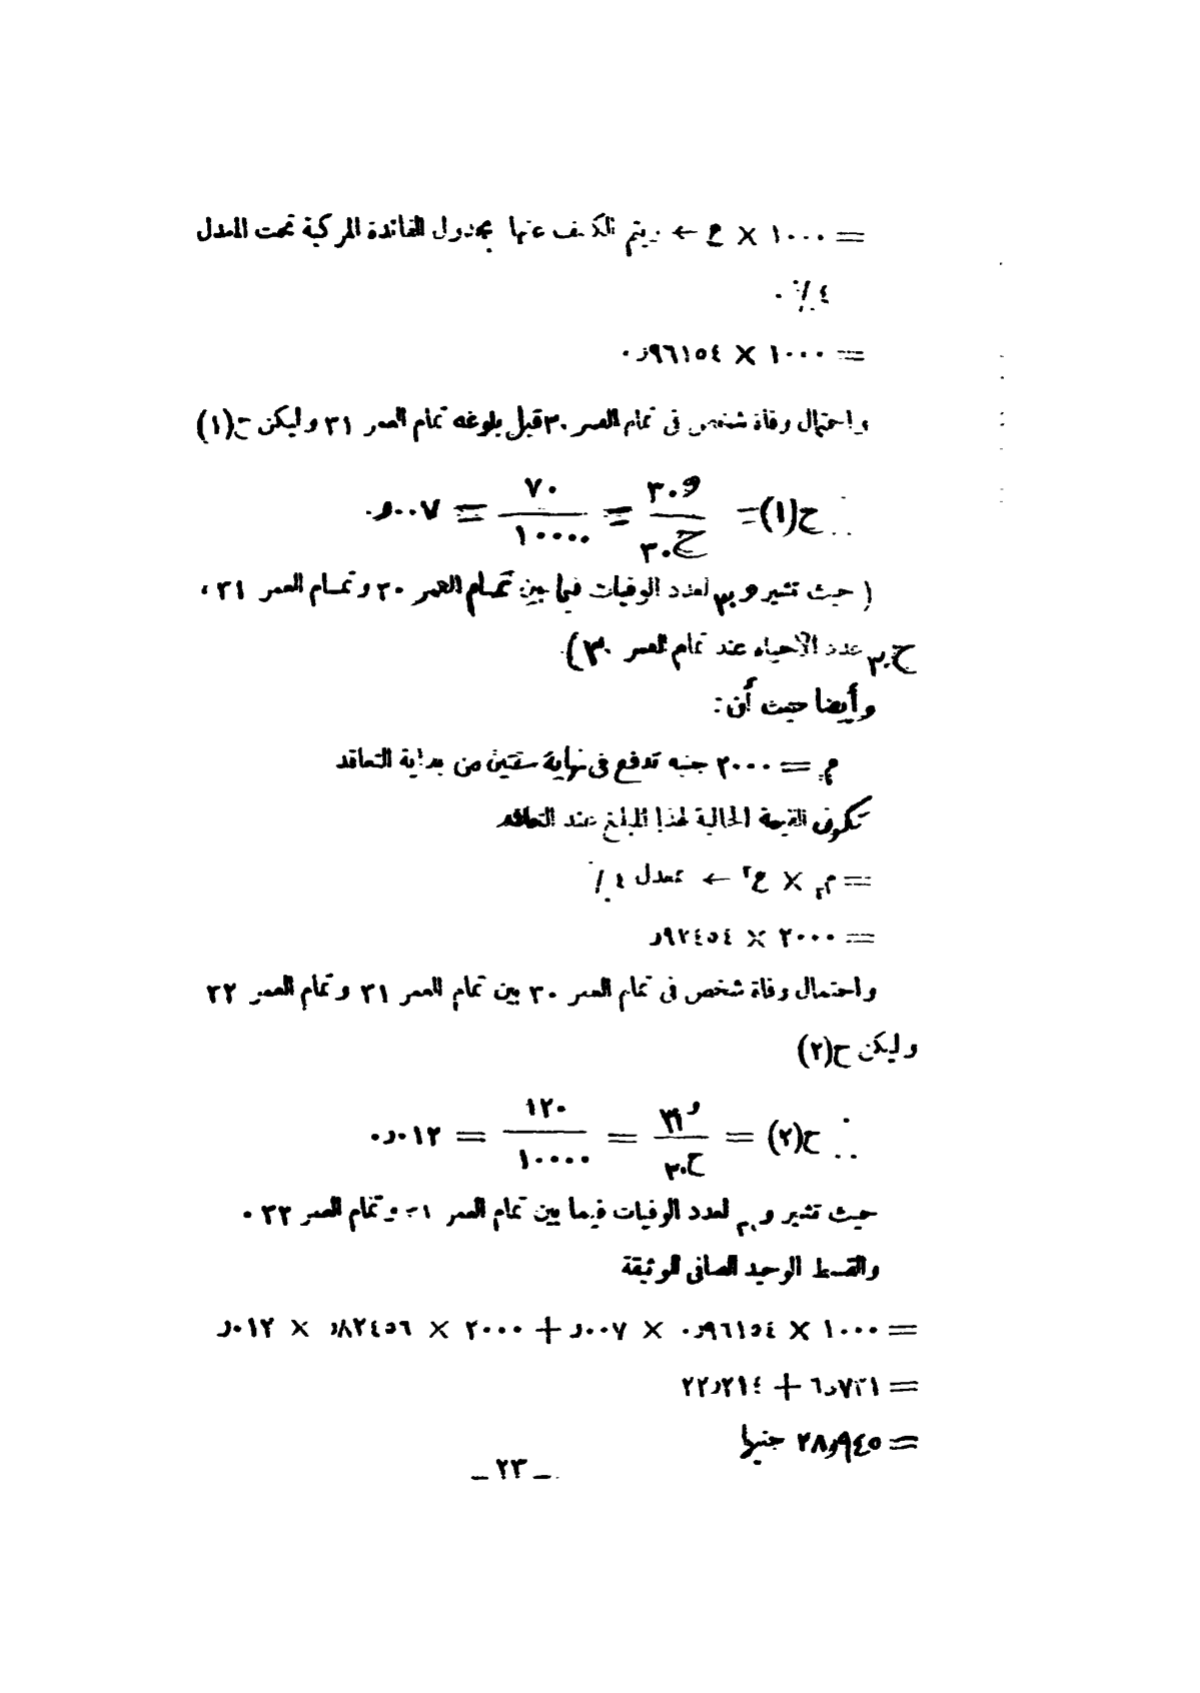 = ١٠٠٠ × ع ← ويتم الكشف عنها بجدول الفائدة المركبة تحت المعدل
٤٪ .
= ١٠٠٠ × ٩٦١٥٤ر٠
واحتمال وفاة شخص فى تمام العمر ٣٠ قبل بلوغه تمام العمر ٣١ وليكن ح(١)
∴ ح(١) = و٣٠ / ح٣٠ = ٧٠ / ١٠٠٠٠ = ٠٠٧ر٠
( حيث تشير و٣٠ لعدد الوفيات فيما بين تمام العمر ٣٠ وتمام العمر ٣١ ،
ح٣٠ عدد الأحياء عند تمام العمر ٣٠)
وأيضا حيث أن :
م٢ = ٢٠٠٠ جنيه تدفع فى نهاية سنتين من بداية التعاقد
تكون القيمة الحالية لهذا المبلغ عند التعاقد
= م٢ × ع٢ ← بمعدل ٤٪
= ٢٠٠٠ × ٩٢٤٥٤ر
واحتمال وفاة شخص فى تمام العمر ٣٠ بين تمام العمر ٣١ وتمام العمر ٣٢
وليكن ح(٢)
∴ ح(٢) = و٣١ / ح٣٠ = ١٢٠ / ١٠٠٠٠ = ٠١٢ر٠
حيث تشير و٣١ لعدد الوفيات فيما بين تمام العمر ٣١ وتمام العمر ٣٢ .
والقسط الوحيد الصافى للوثيقة
= ١٠٠٠ × ٩٦١٥٤ر٠ × ٠٠٧ر + ٢٠٠٠ × ٨٢٤٥٦ر × ٠١٢ر
= ٧٣١ر٦ + ٢١٤ر٢٢
= ٩٤٥ر٢٨ جنيها
– ٢٣ –